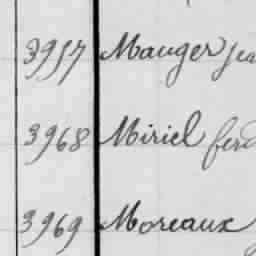 3957 Mauger Jea
3968 Miriel ferd
3969 Moreaux